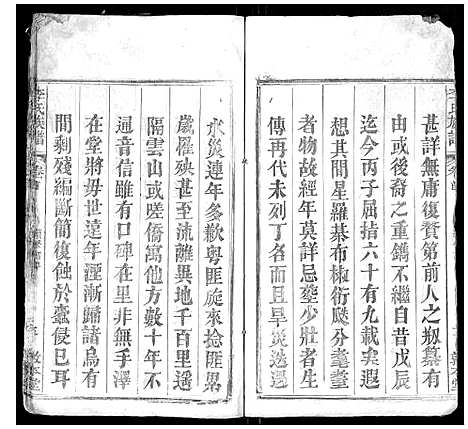 李氏族譜 卷首
甚詳無庸復贅第前人之刱纂有
由或後裔之重鐫不繼自昔戊辰
迄今丙子屈指六十有九載矣遐
想其間星羅棊布椒衍飈分耄耋
者物故經年莫詳忌塟少壯者生
傳再代未列丁名而且旱災迭遇
水災連年多歉粵匪旋來捻匪畧
歲催殃甚至流離異地千百里遥
隔雲山或嗟僑寓他方數十年不
通音信雖有口碑在里非無手澤
在堂將毋世遠年湮漸歸諸烏有
間剩残編斷簡復蝕於蠹侵已耳
李氏族譜 卷首
敦本堂